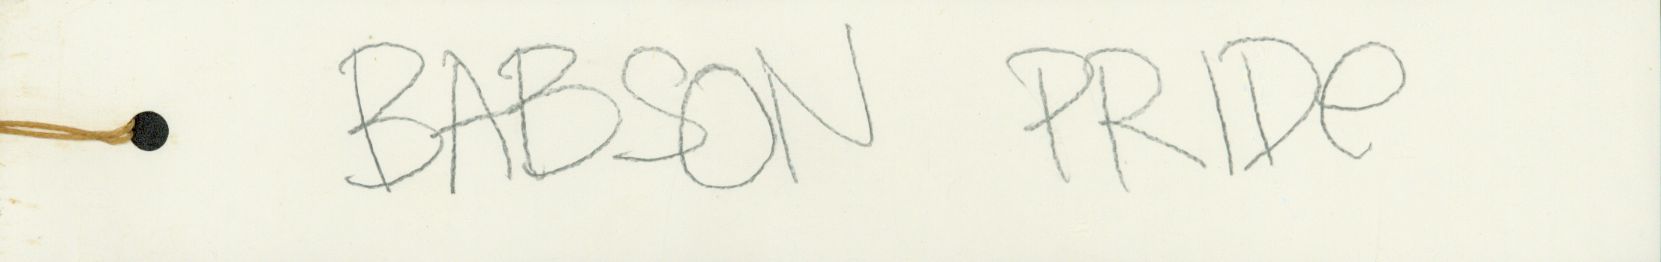 BABSON PRIDe